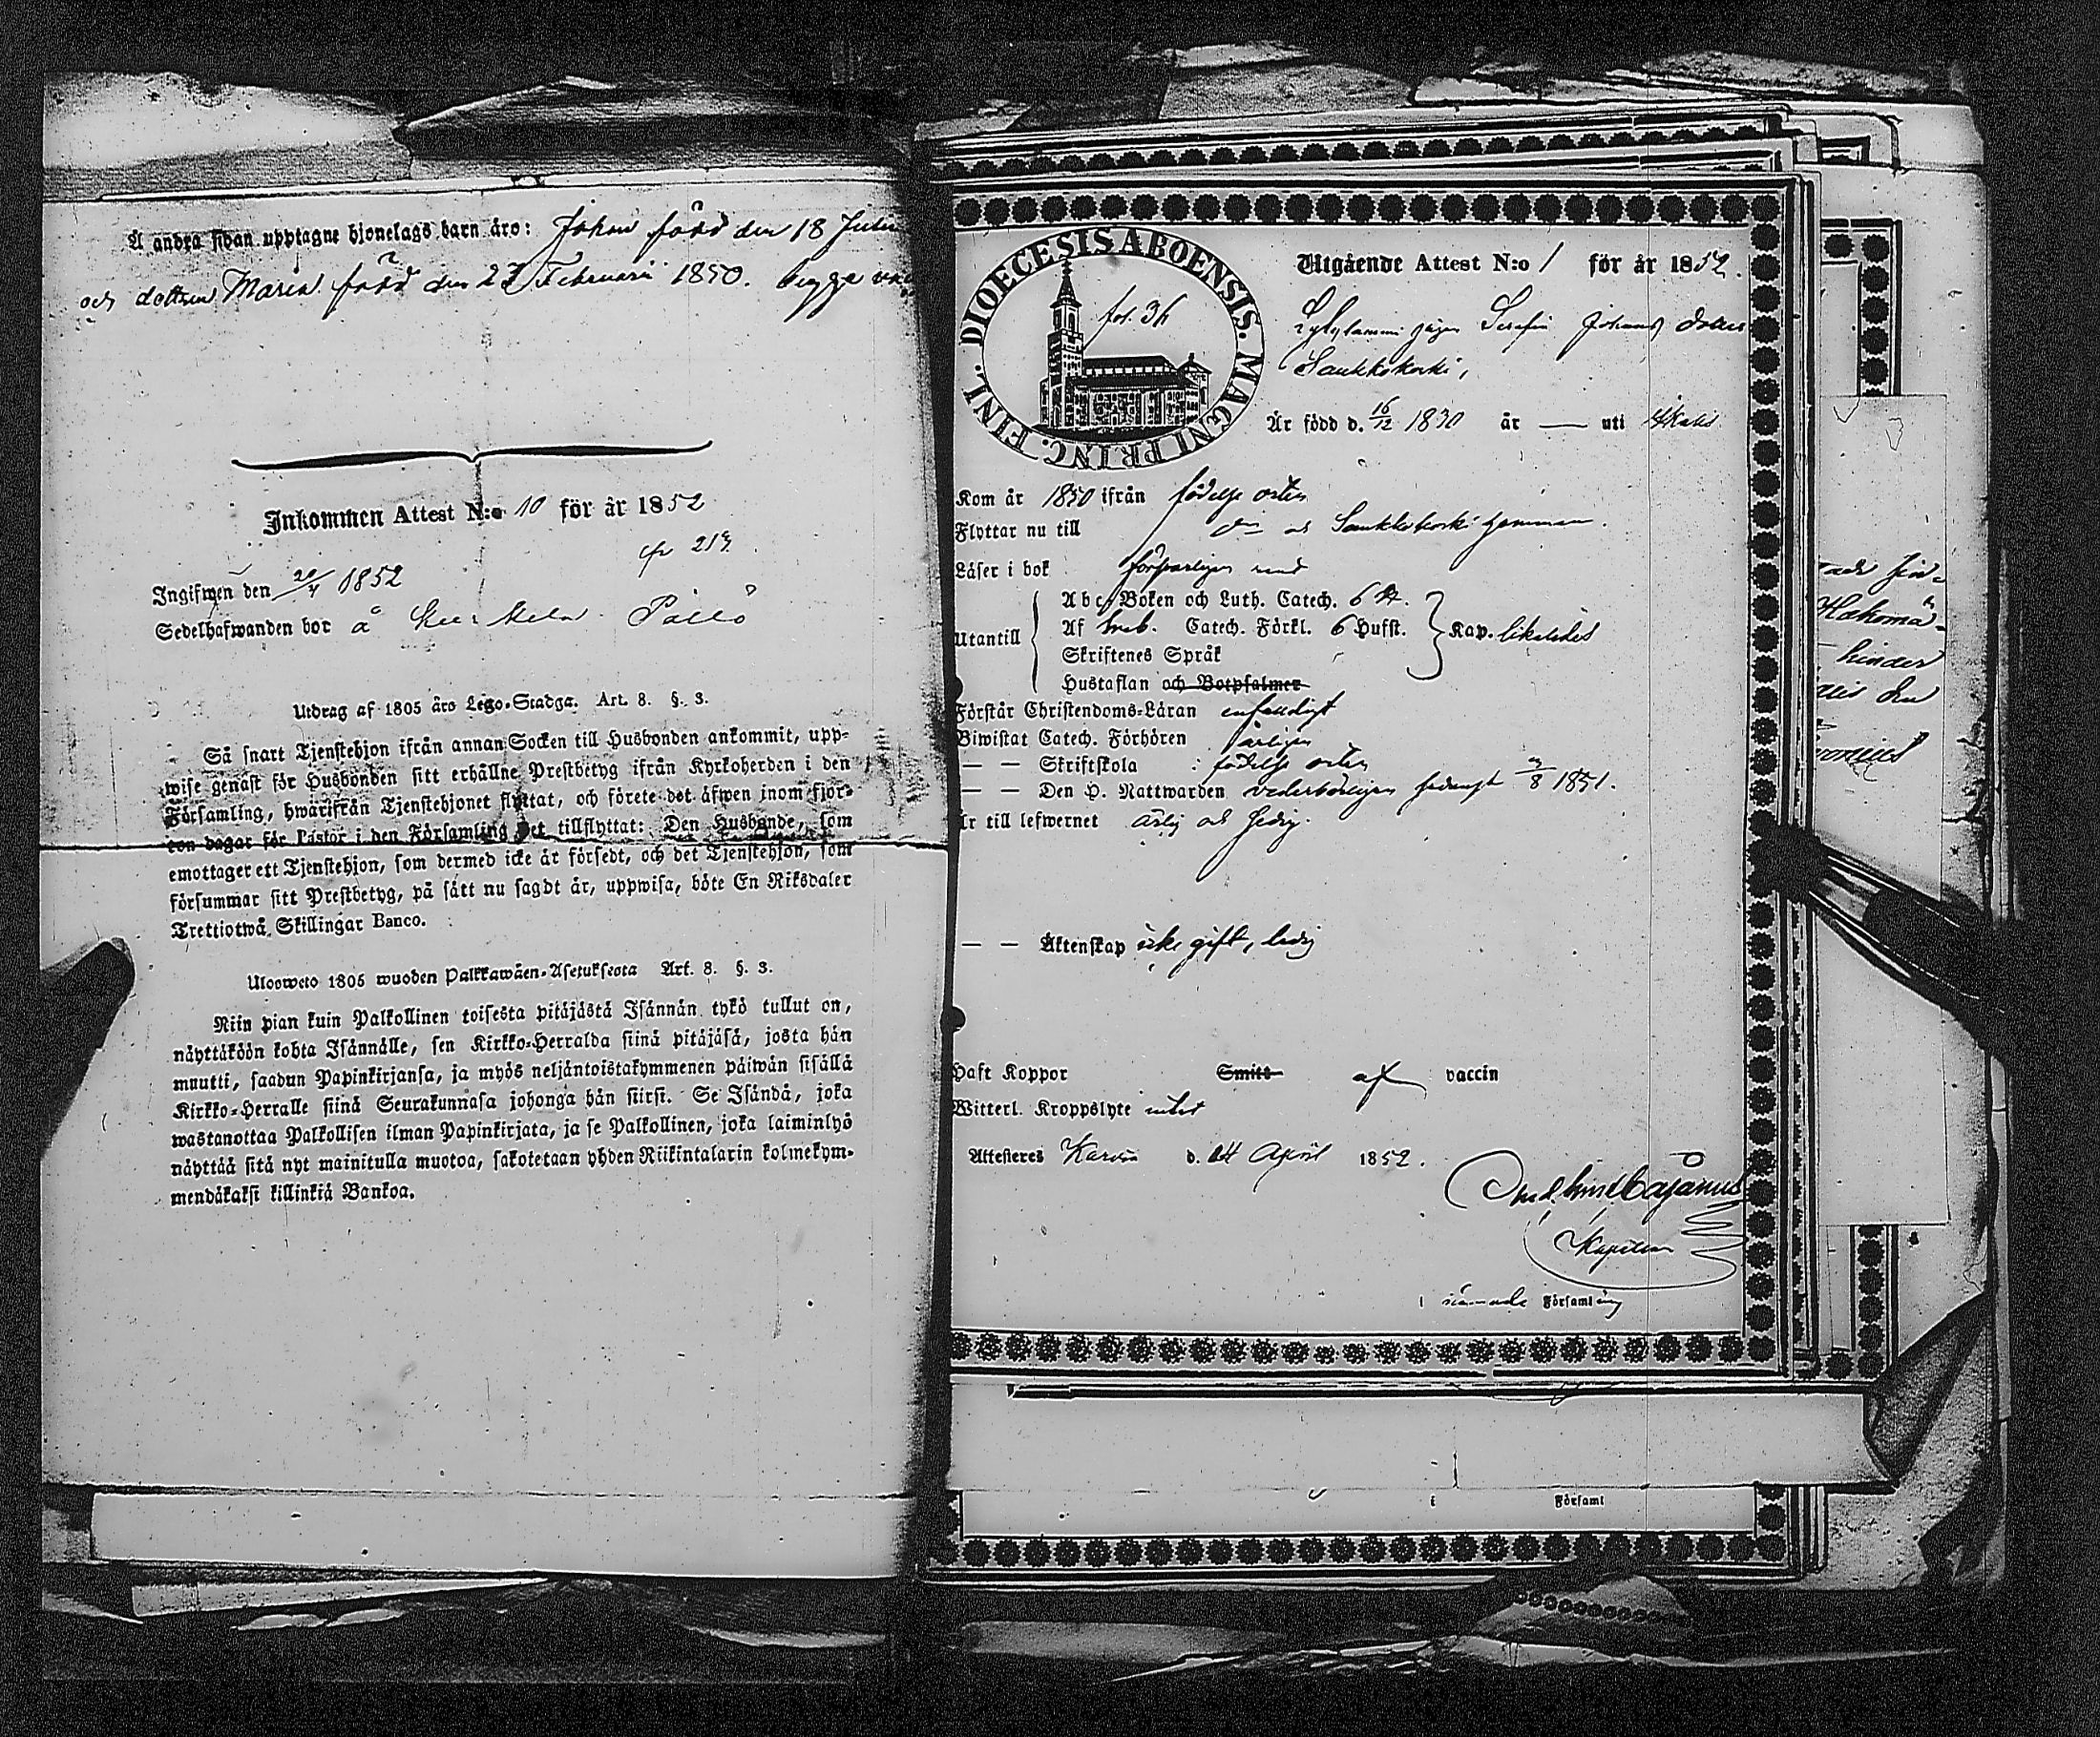 Å andra sidan upptagne hjonelags barn äro: Johan född den 18 Julii
och dottren Maria född den 27 Februarii 1850. begge
Inkommen Attest N:o 10 för år 1852
219.
Ingifwen den 20/4 1852
Sedelhafwanden bor å
Utdrag af 1805 års Lego-Stadga. Art. 8. §. 3.
Så snart Tjenstehjon ifrån annan Socken till Husbonden ankommit, upp-
wise genast för Husbonden sitt erhållne Prestbetyg ifrån Kyrkoherden i den
Församling, hwarifrån Tjenstehjonet flyttat, och förete det äfwen inom fjor-
ton dagar för Pastor i den Församling det tillflyttat: Den Husbonde, som
emottager ett Tjenstehjon, som dermed icke är försedt, och det Tjenstehjon, som
försummar sitt Prestbetyg, på sätt nu sagdt är, uppwisa, böte En Riksdaler
Trettiotwå Skillingar Banco.
Ulosweto 1805 wuoden Palkkawäen-Asetuksesta Art. 8. §. 3.
Niin pian kuin Palkollinen toisesta pitäjästä Isännän tykö tullut on,
näyttäköön kohta Isännälle, sen Kirkko-Herralda siinä pitäjäsä, josta hän
muutti, saadun Papinkirjansa, ja myös neljäntoistakymmenen päiwän sisällä
Kirkko-Herralle siinä Seurakunnasa johonga hän siirsi. Se Isändä, joka
wastanottaa Palkollisen ilman Papinkirjata, ja se Palkollinen, joka laiminlyö
näyttää sitä nyt mainitulla muotoa, sakotetaan yhden Riikintalarin kolmekym-
mendäkaksi killinkiä Bankoa.
DIOECESIS ABOENSIS. MAGNI PRINC. FINL.
fol. 36
Utgående Attest N:o 1 för år 1852.
Serafia Johans dotter
Sankkokoski,
Är född d. 16/12 1830 år — uti Ikalis
Kom år 1850 ifrån födelse orten
Flyttar nu till Sankkokoski hemman.
Läser i bok försvarligen
Abc-Boken och Luth. Catech. 6 St.
Utantill Af Catech. Förkl. 6 Hufst. Kap. likaledes
Skriftenes Språk
Hustaflan och Botpsalmer
Förstår Christendoms-Läran enfaldigt
Biwistat Catech. Förhören årligen
— — Skriftskola : födelse orten
— — Den H. Nattwarden vederbörligen sednast 3/8 1851.
Är till lefwernet ärlig och sedig.
— — Äktenskap icke gift, ledig
Haft Koppor Smitt af vaccin
Witterl. Kroppslyte intet
Attesteres Karvia d. 14 April 1852.
Cajanus
Kapellan
i nämnde Församling
i Församl